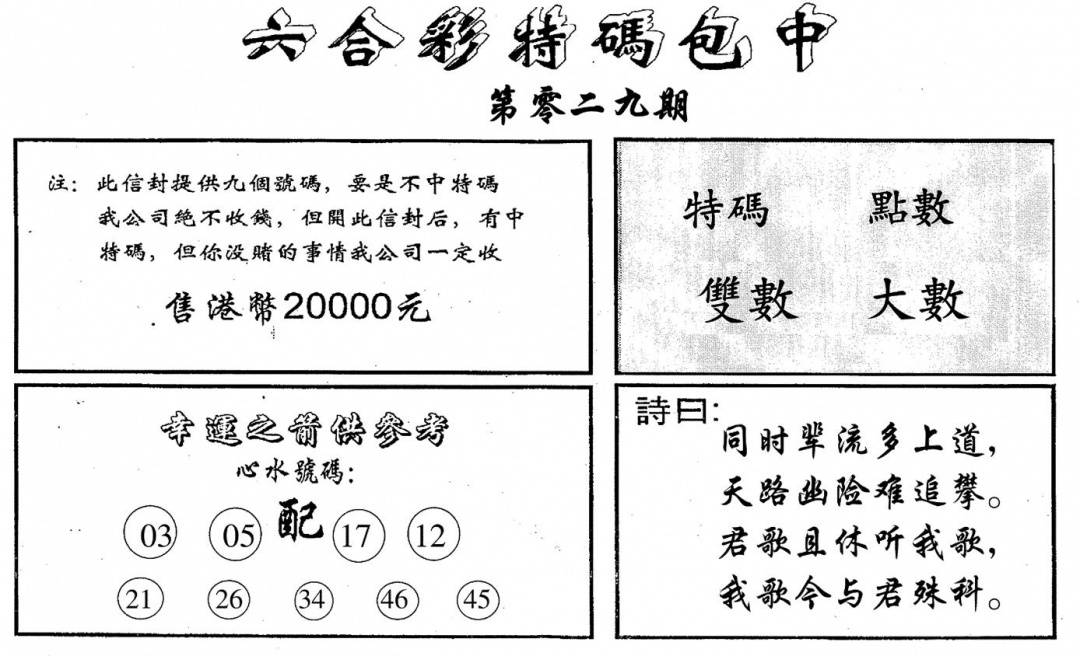 六合彩特碼包中
第零二九期
注：此信封提供九個號碼，要是不中特碼
我公司絕不收錢，但開此信封后，有中
特碼，但你没賭的事情我公司一定收
售港幣20000元
特碼 點數
雙數 大數
幸運之箭供參考
心水號碼：
03 05 配 17 12
21 26 34 46 45
詩曰：
同时辈流多上道，
天路幽险难追攀。
君歌且休听我歌，
我歌今与君殊科。